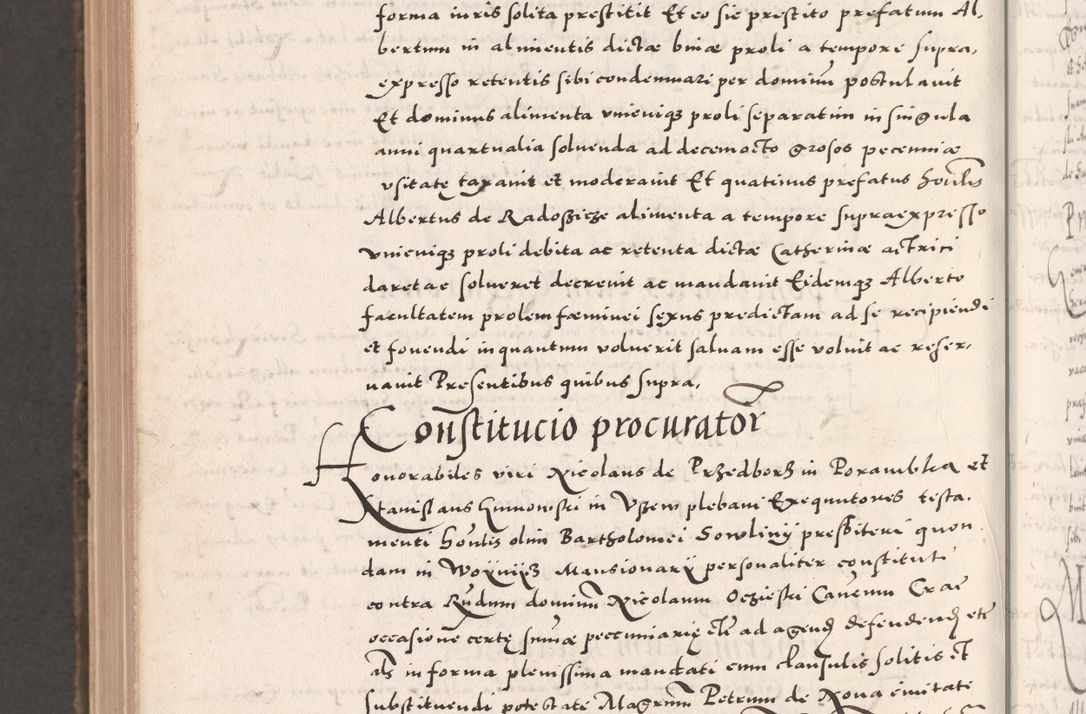 forma iuris solita prestitit Et eo sic prestito prefatum Al,
bertum in alimentis dictæ binæ proli a tempore supra,
expresso retentis sibi condemnari per dominũ postulavit
Et dominus alimenta vnicuiqȝ proli separatim in singula
anni quartualia soluenda ad decemocto grosos pecuniæ
vsitatę taxauit et moderauit Et quatinus prefatus hon̄lis
Albertus de Radoszicze alimenta a tempore supraexpresso
vnicuiqȝ proli debita ac retenta dictæ Catherinæ actrici
daret ac solueret decreuit ac mandauit Eidemqȝ Alberto
facultatem prolem fæminei sexus predictam ad se recipiendi
et fouendi inquantum voluerit saluam esse voluit ac reser,
uauit Presentibus quibus supra.
Constitucio procurator̃
Honorabiles viri Nicolaus de Przedborz in Porambka et
Stanislaus in Vszew plebani Exequutores testa,
menti hon̄lis olim Bartholomei Sowliny presbiteri quon
dam in Woynicz Mansionarij personaliter constituti
contra Rn̄dum dominũ Nicolaum Oczieski Can̄cum Crac
occasione certę sum̃æ pecuniarię etc̃ ad agend̨ defendend̨ etc̃
als̃ in forma plenissima mandati cum clausulis solitis et
substituendi potestate Magrum̃ Petrum de Noua ciuitate